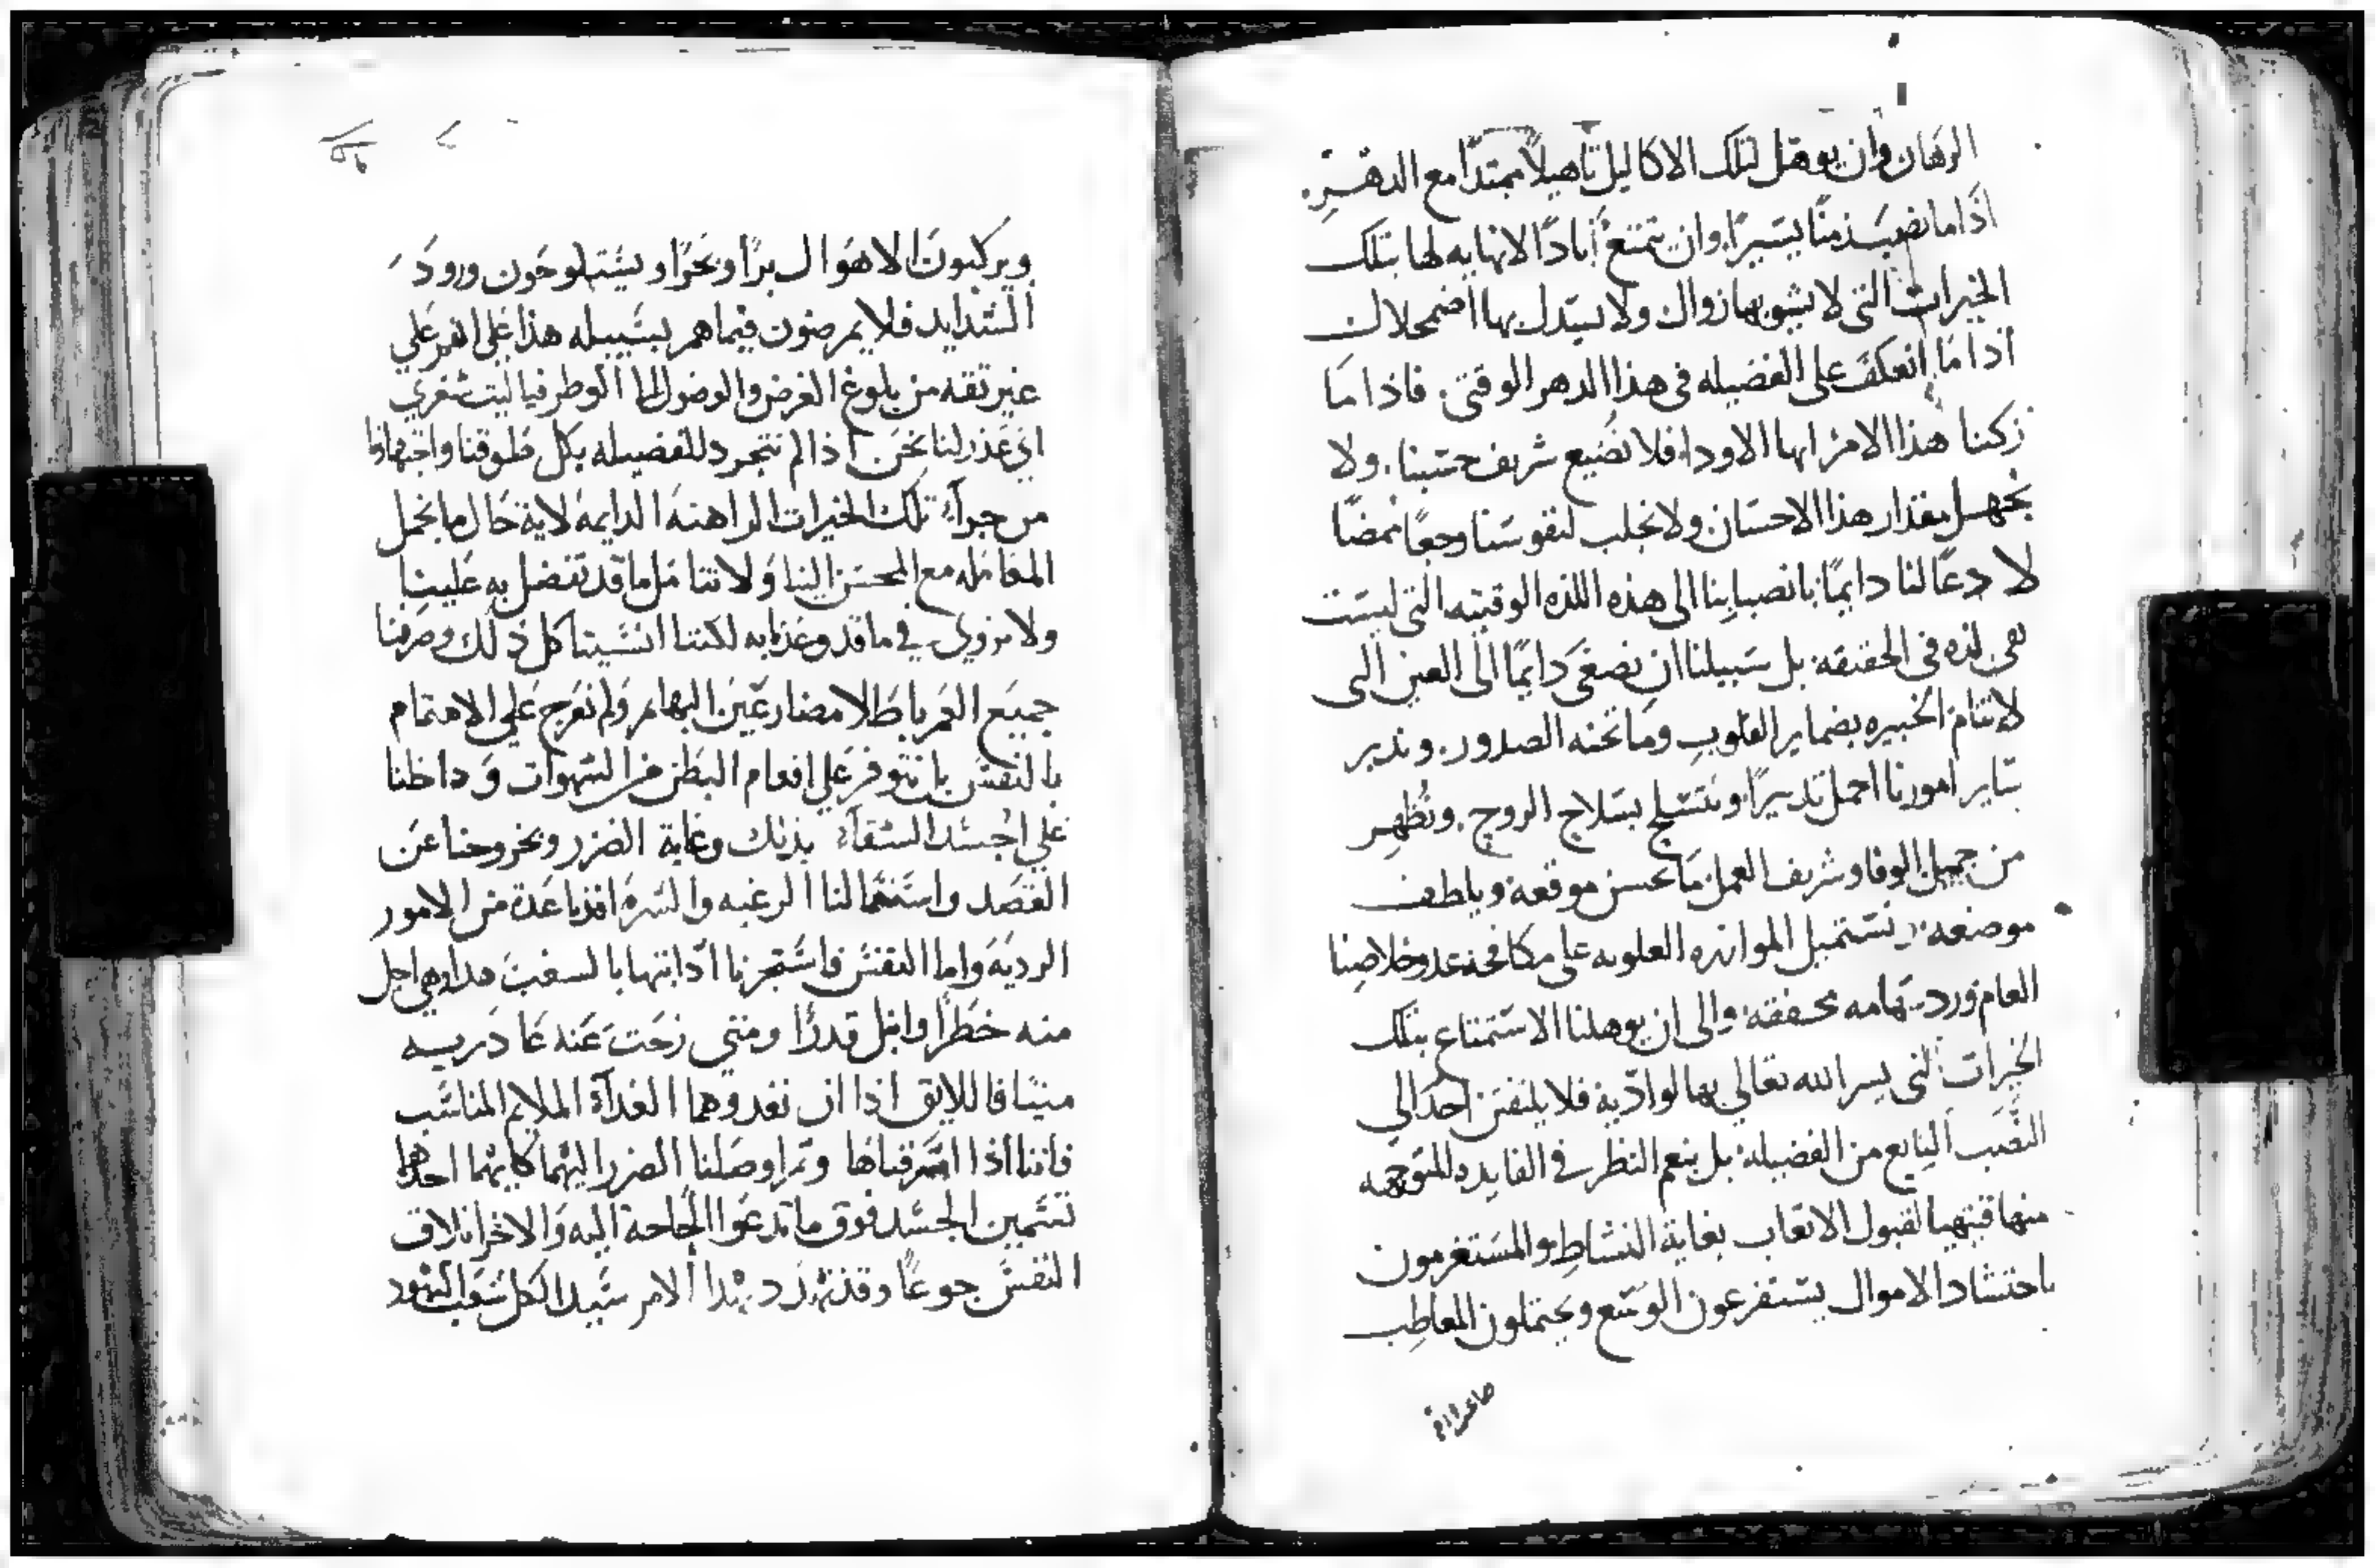 الرهان وان يوهل لتلك الاكاليل تاهيلاً ممتدّا مع الدهر.
اذا ما نصب زمنًا يسيرًا. وان يتمتع ابادًا لا نهايه لها بتلك
الخيرات التي لا يشوبها زوال ولا يستدل بها اضمحلال
اذا ما انعكف على الفضيله في هذا الدهر الوقتي. فاذا ما
زكنا هذا الامر ايها الاودا. فلا نضيع شريف حسبنا. ولا
نجهل مقدار هذا الاحسان ولا نجلب لنفوسنا وجعًا ممضّا
لا دعًا لنا دايمًا بانصبابنا الى هذه اللذه الوقتيه التي ليست
هي لذه في الحقيقه. بل سبيلنا ان نصغى دايمًا الى العين التي
لا تنام الخبيره بضماير القلوب وما تخنه الصدور. وندبر
ساير امورنا اجمل تدبيرًا. ونتسلح بسلاح الروح. ونظهر
من جميل الوفا وشريف العمل ما يحسن موقعه ويلطف
موضعه. ونستميل الموازره العلويه على مكافحة عدو خلاصنا
العام ورد سهامه محققه. والى ان يوهلنا الاستمتاع بتلك
الخيرات التي يسر الله تعالي بها لوادّيه فلا يلتفتن احد الي
النصب النابع من الفضيله بل ينعم النظر في الفايده المتوجهه
منها فيتهيا لقبول الاتعاب بغاية النشاط والمستغرمون
باحتشاد الاموال يستفرغون الوسع ويحتملون المعاطب
ويركبون الاهوال برًا وبحرًا ويستلوحون ورود
الشدايد فلا يمرضون فيما هم بسبيله هذا على انهم علي
غير ثقه من بلوغ الغرض والوصول الى الوطر فيا ليت شعري
اي عذر لنا نحن اذا لم نتجرد للفضيله بكل طوقنا واجتهادنا
من جرآء تلك الخيرات الراهنه الدايمه لاية حال ما نجمل
المعامله مع المحسن الينا ولا نتامل ما قد تفضل به علينا
ولا نروي في ما قد وعدنا به لكننا انسينا كل ذلك وصرفنا
جميع العمر باطلا مضارعين البهايم ولم نعرج على الاهتمام
بالنفس بل نتوفر على افعام البطن من الشهوات و داخلنا
على الجسد الشقآء بذلك وغاية الضرر وبخروجنا عن
القصد واستعمالنا الرغبه والشره افدنا عدة من الامور
الرديه واما النفس فاستجزنا اذابتها بالسغب هذا وهي اجل
منه خطرًا وانبل قدرًا ومتى نزحت عنه غادرته
ميتًا فاللايق اذا ان نغدوهما الغدآء الملايم المناسب
فاننا اذا اسرفناها وثم اوصلنا الضرر اليهما كليهما احدهما
تسمين الجسد فوق ما تدعوا الحاجة اليه والاخر اتلاف
النفس جوعًا وقد تهدد بهذا الامر سيد الكل شعب اليهود